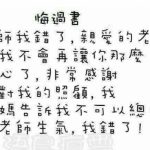 悔過書
師我錯了,親愛的老
我不會再讓你那麼
心了,非常感謝
對我的照顧,我
媽告訴我不可以總
老師生氣,我錯了!